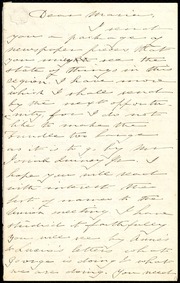 Dear Maria,
I send
you a package of
newspaper pieces that
you might see the
state of things in this
region. I have more
which I shall send
by the next opportu-
nity, for I do not
like to make the
bundle too large
as it is to go by Mr
I
hope you will read
with interest the
list of names to the
meeting I have
studied it faithfully
You will see by Anne's
& letters what
George is doing & what
we are doing. You need